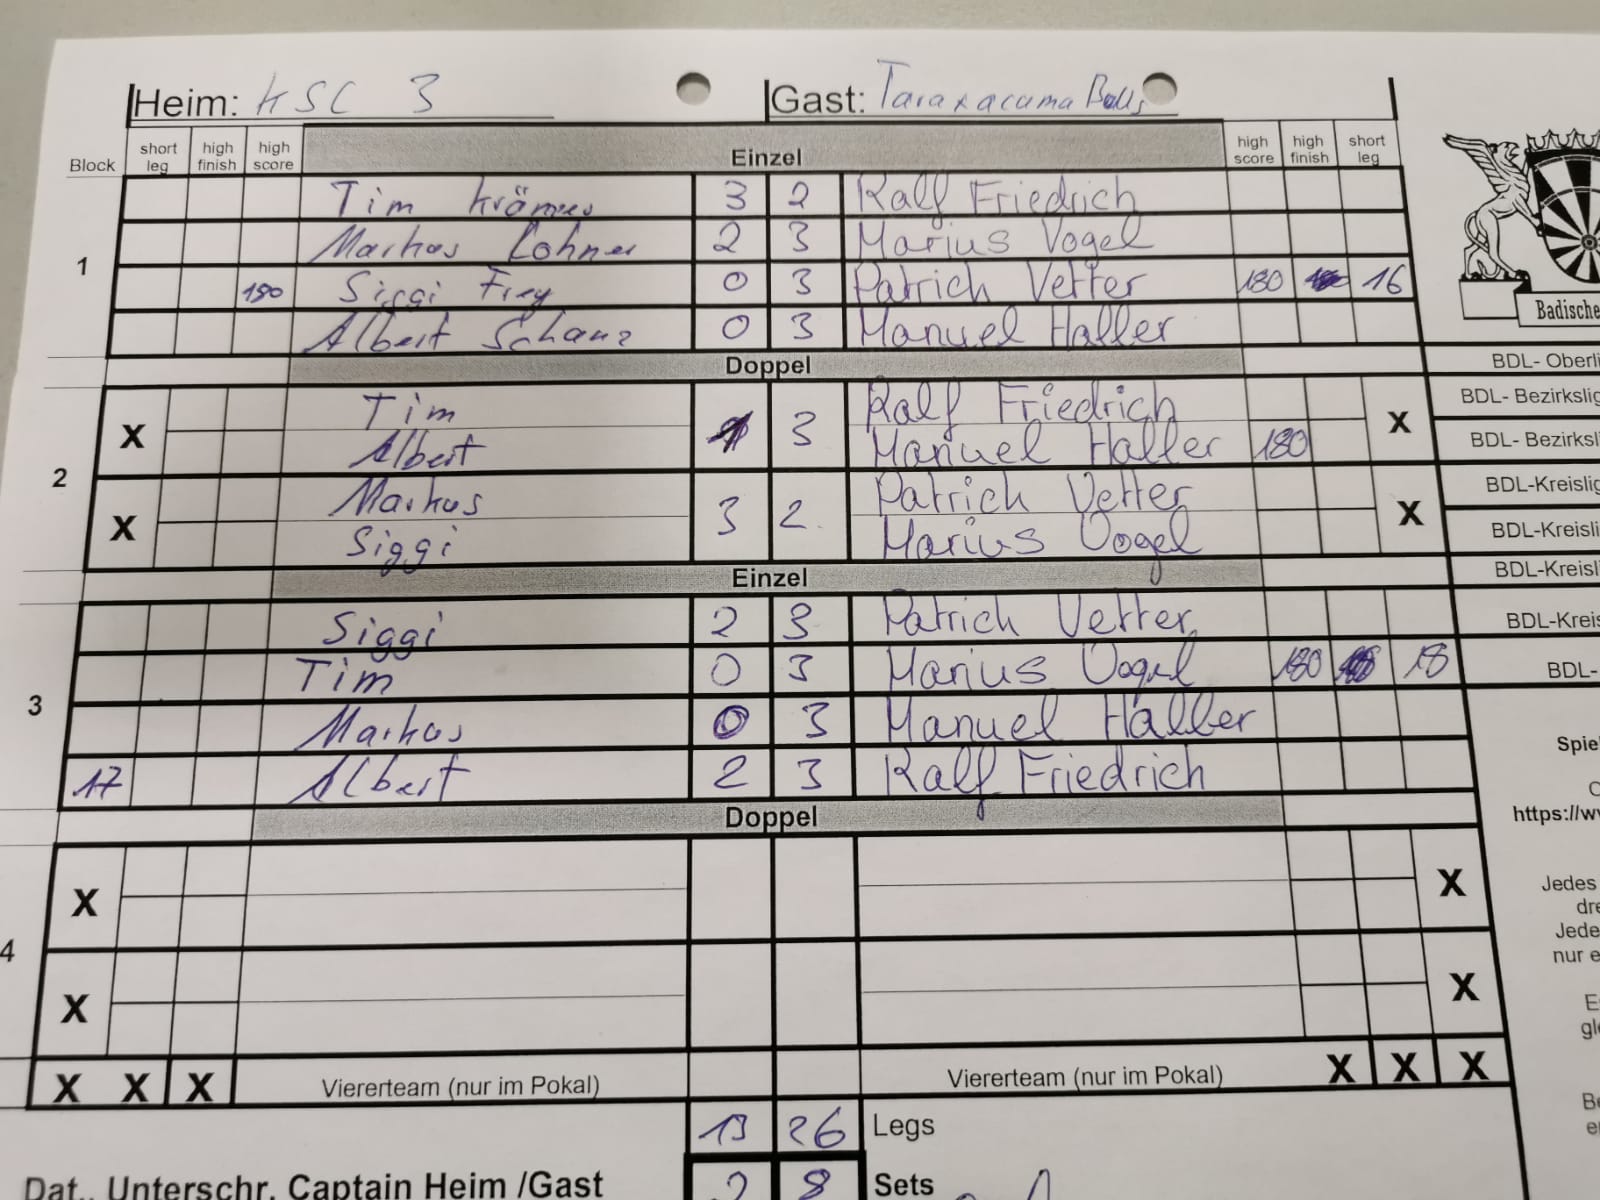 Heim: KSC 3 Gast: Taraxacuma Bulls
Block short leg high finish high score Einzel high score high finish short leg
1
Tim Krämer 3 2 Ralf Friedrich
Markus Lohner 2 3 Marius Vogel
180 Siggi Frey 0 3 Patrick Vetter 180 16
Albert Schanz 0 3 Manuel Haller
Doppel
2
X Tim 3 Ralf Friedrich X
Albert Manuel Haller 180
X Markus 3 2 Patrick Vetter X
Siggi Marius Vogel
Einzel
3
Siggi 2 3 Patrick Vetter
Tim 0 3 Marius Vogel 180 18
Markus 0 3 Manuel Haller
17 Albert 2 3 Ralf Friedrich
Doppel
4
X X
X X
X X X Viererteam (nur im Pokal) Viererteam (nur im Pokal) X X X
13 26 Legs
Dat., Unterschr. Captain Heim /Gast 2 8 Sets
Badische
BDL- Oberli
BDL- Bezirkslig
BDL- Bezirksli
BDL-Kreislig
BDL-Kreisli
BDL-Kreisl
BDL-Kreis
BDL-
Spie
https://w
Jedes
dre
Jede
nur e
E
gl
Be
er